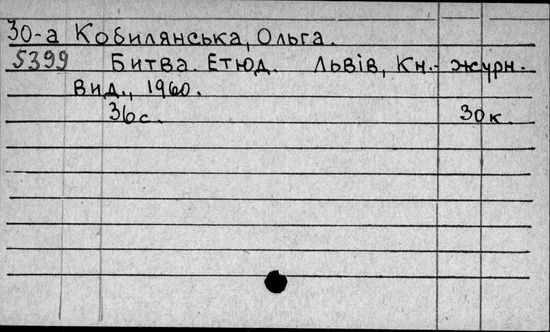 30-а Кобилянська, Ольга.
5399 Битва. Етюд. Львів, Кн.-журн.
вид., 1960.
36 с. 30 к.